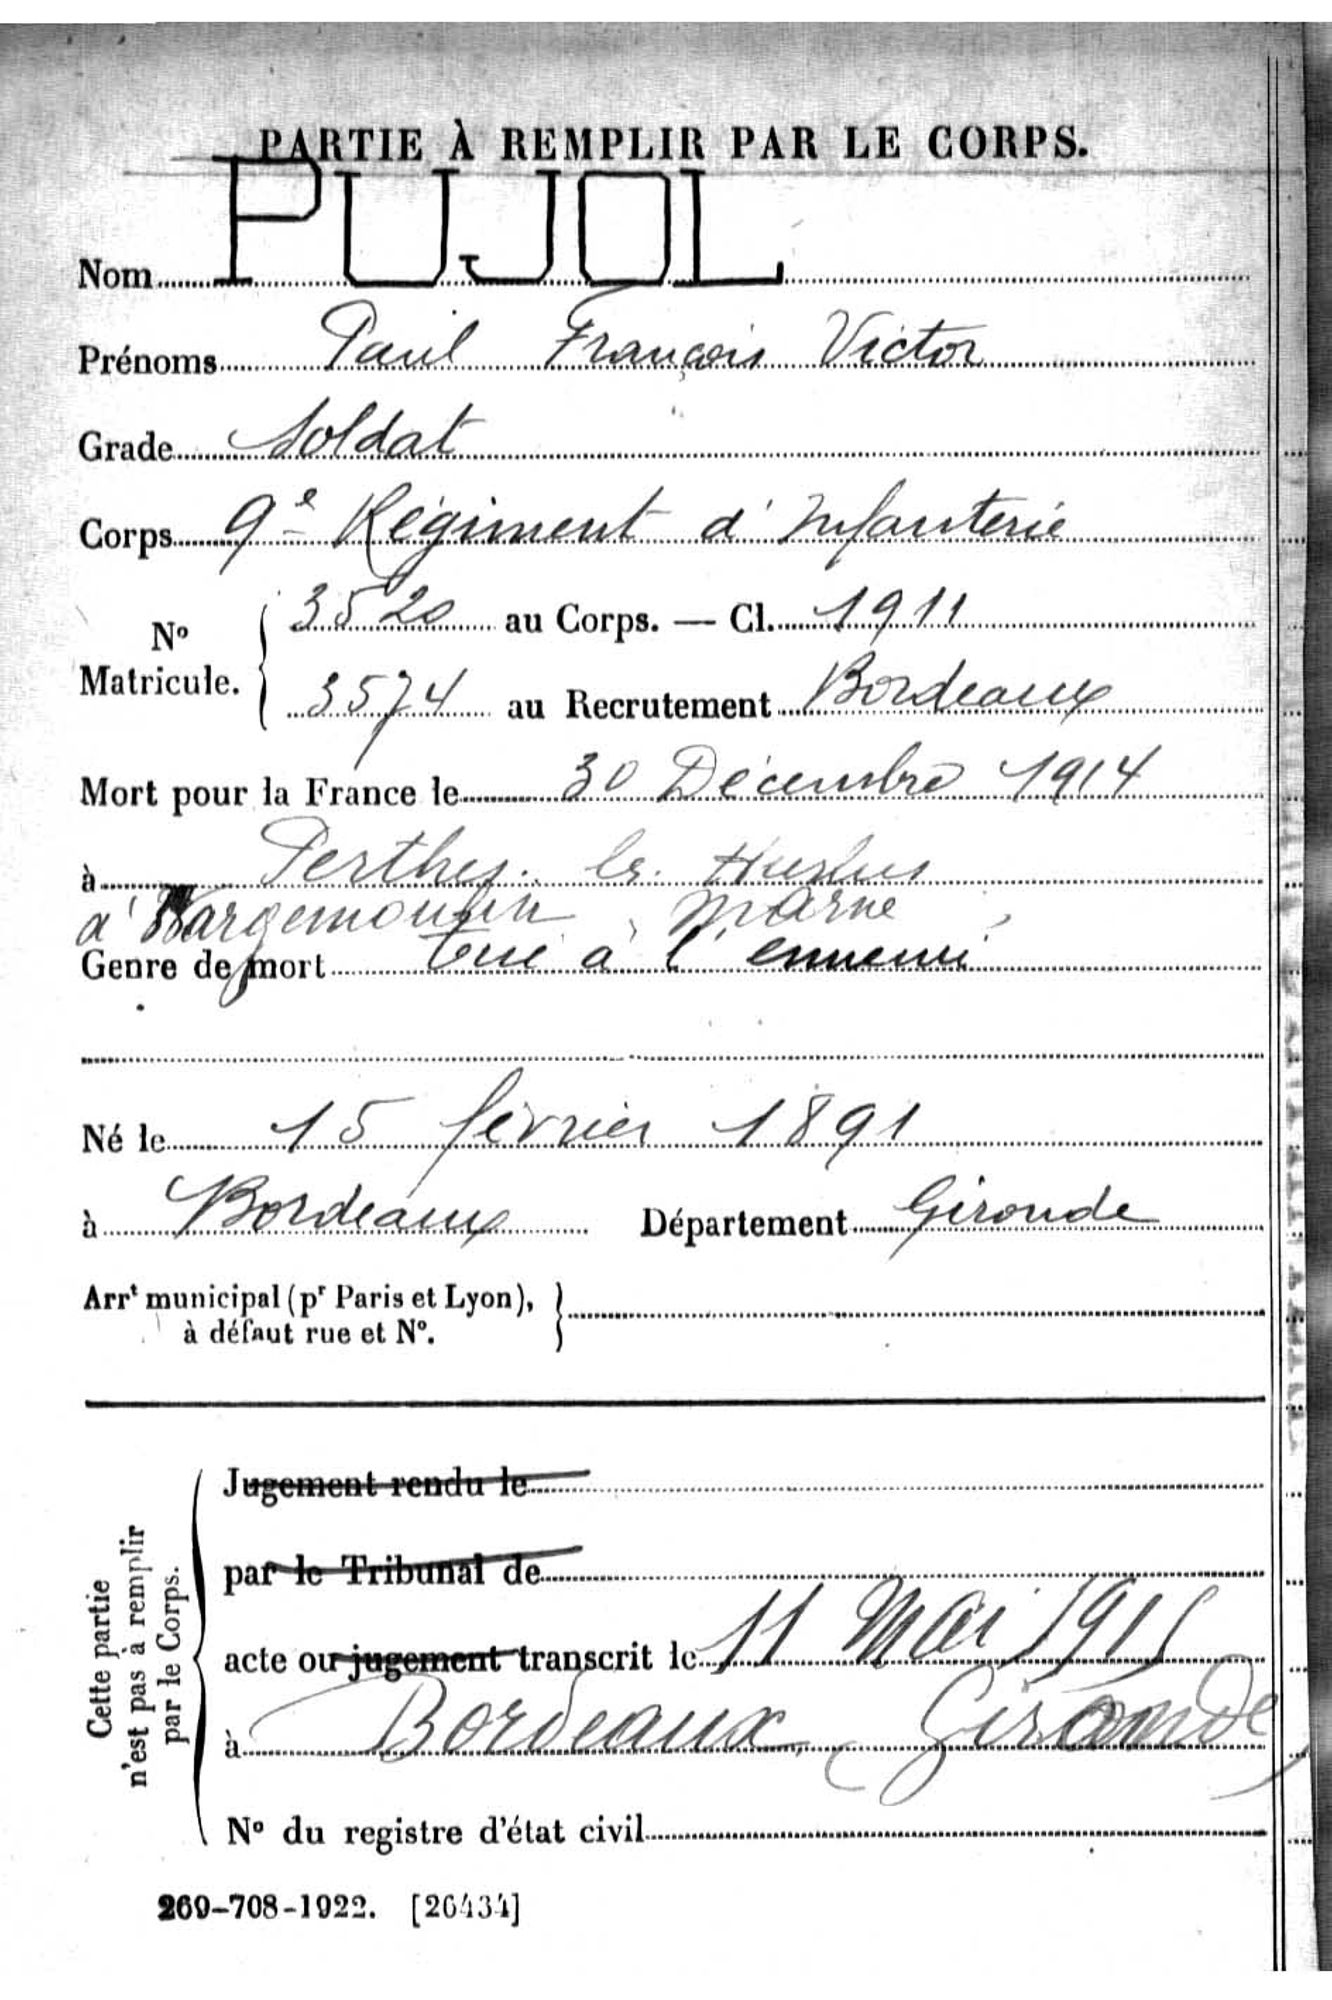 PARTIE À REMPLIR PAR LE CORPS.
Nom PUJOL
Prénoms Paul François Victor
Grade Soldat
Corps 9e Régiment d'Infanterie
No Matricule. { 3520 au Corps. — Cl. 1911
3574 au Recrutement Bordeaux
Mort pour la France le 30 Décembre 1914
à Perthes. les. Hurlus
à Wargemoulin, Marne
Genre de mort tué à l'ennemi
Né le 15 février 1891
à Bordeaux Département Gironde
Arrt municipal (pr Paris et Lyon), }
à défaut rue et No.
Cette partie
n'est pas à remplir
par le Corps.
Jugement rendu le
par le Tribunal de
acte ou jugement transcrit le 11 Mai 1915
à Bordeaux, Gironde
No du registre d'état civil
269-708-1922. [26434]